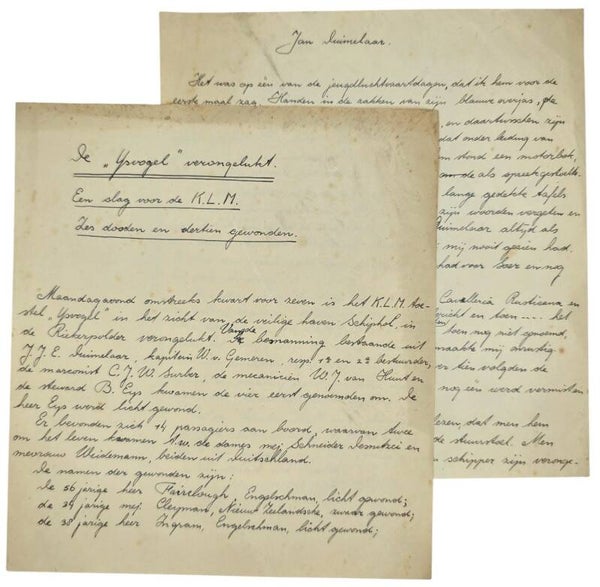 De „Ysvogel" verongelukt.
Een slag voor de K.L.M.
Zes dooden en dertien gewonden.
Maandagavond omstreeks kwart voor zeven is het K.L.M. toe-
stel „Ysvogel" in het zicht van de veilige haven Schiphol, in
de Riekerpolder verongelukt. Van de bemanning bestaande uit
J.J.E. Duimelaar, kapitein W.v. Gemeren, resp. 1e en 2e bestuurder,
de marconist C.J.W. Surber, de mecanicien W.J. van
de steward B. Eys kwamen de vier eerst genoemden om. De
heer Eys werd licht gewond.
Er bevonden zich 14 passagiers aan boord, waarvan twee
om het leven kwamen t.w. de dames mej Schneider en
mevrouw Weidemann, beiden uit Duitschland.
De namen der gewonden zijn:
de 56 jarige heer Engelschman, licht gewond;
de 29 jarige mej. Clegman, Nieuw Zeelandsche, zwaar gewond;
de 38 jarige heer Ingram, Engelschman, licht gewond;
Jan Duimelaar.
Het was op één van de jeugdluchtvaartdagen, dat ik hem voor de
eerste maal zag. Handen in de zakken van zijn blauwe overjas, de
en daartusschen zijn
dat onder leiding van
stond een
als spreekgestoelte
lange gedekte tafels
zijn woorden vergeten en
Duimelaar altijd als
mij nooit gezien had.
had voor Soer en nog
Cavalleria Rusticana en
en toen .... het
ben nog niet genoemd,
maakte mij onrustig.
tien volgden de
nog één werd vermisten
lezen, dat men hem
de stuurstoel. Men
schipper zijn veronge-